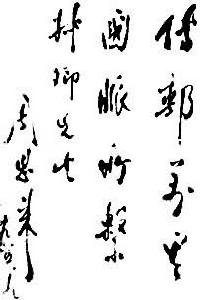 傳郵萬里
國脈所繫
先生
周恩来